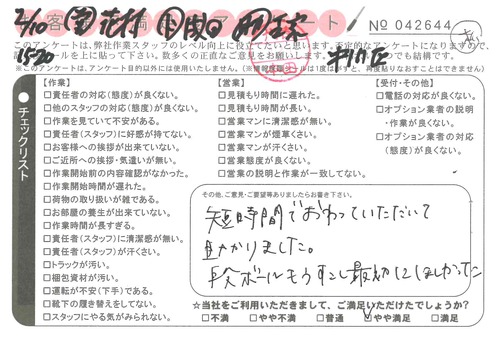 お客様満足度アンケート
№ 042644
このアンケートは、弊社作業スタッフのレベル向上に役立てたいと思います。否定的なアンケートになりますので、
15:30
※このアンケートは、アンケート目的以外には使用いたしません。
チェックリスト
【作業】
□責任者の対応(態度)が良くない。
□他のスタッフの対応(態度)が良くない。
□作業を見ていて不安がある。
□責任者(スタッフ)に好感が持てない。
□お客様への挨拶が出来ていない。
□ご近所への挨拶・気遣いが無い。
□作業開始前の内容確認がなかった。
□作業開始時間が遅れた。
□荷物の取り扱いが雑である。
□お部屋の養生が出来ていない。
□作業時間が長すぎる。
□責任者(スタッフ)に清潔感が無い。
□責任者(スタッフ)が汗くさい。
□トラックが汚い。
□梱包資材が汚い。
□運転が不安(下手)である。
□靴下の履き替えをしてない。
□スタッフにやる気がみられない。
【営業】
□見積もり時間に遅れた。
□見積もり時間が長い。
□営業マンに清潔感が無い。
□営業マンが煙草くさい。
□営業マンが汗くさい。
□営業態度が良くない。
□営業の説明と作業が一致してない。
【受付・その他】
□電話の対応が良くない。
□オプション業者の説明
・作業が良くない。
□オプション業者の対応
(態度)が良くない。
その他、ご意見・ご要望等ありましたらお書き下さい。
短時間でおわっていただいて
助かりました。
段ボールもう少し最初にほしかった
☆当社をご利用いただきまして、ご満足いただけたでしょうか?
□不満 □やや不満 □普通 ☑やや満足 □満足